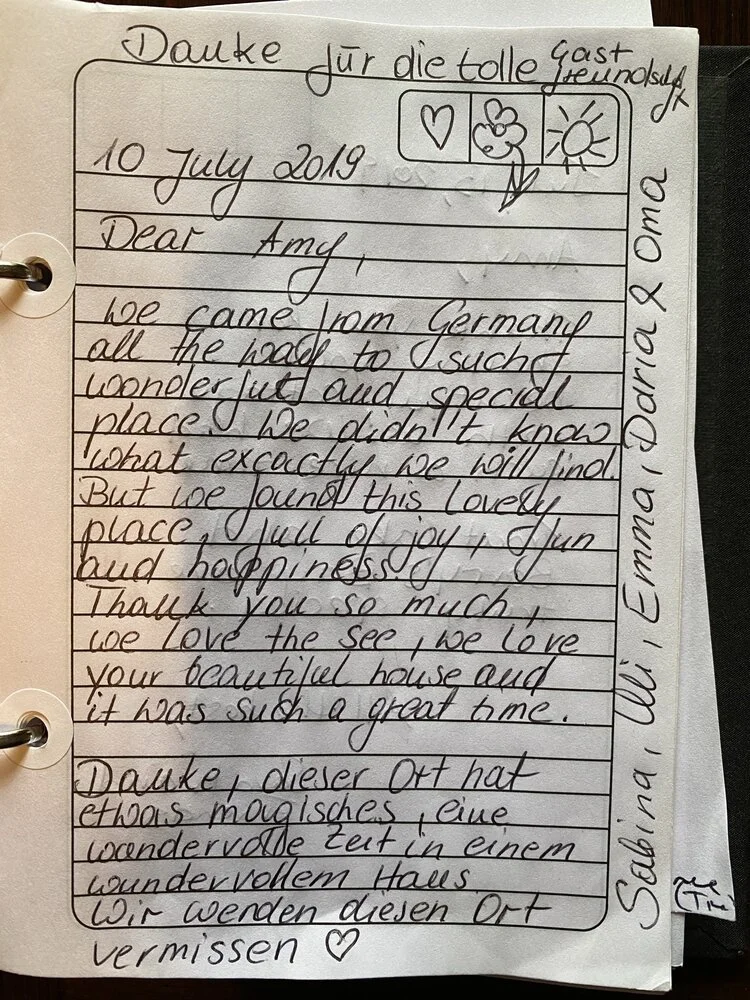 Danke für die tolle Gast
freundschaft
10 July 2019
Dear Amy,
we came from Germany
all the way to such
wonderful and special
place. We didn't know
what excactly we will find.
But we found this lovely
place, full of joy, fun
and happiness.
Thank you so much,
we love the see, we love
your beautiful house and
it was such a great time.
Danke, dieser Ort hat
etwas magisches, eine
wundervolle Zeit in einem
wundervollem Haus
Wir werden diesen Ort
vermissen ♡
Sabina, Ulli, Emma, Daria & Oma